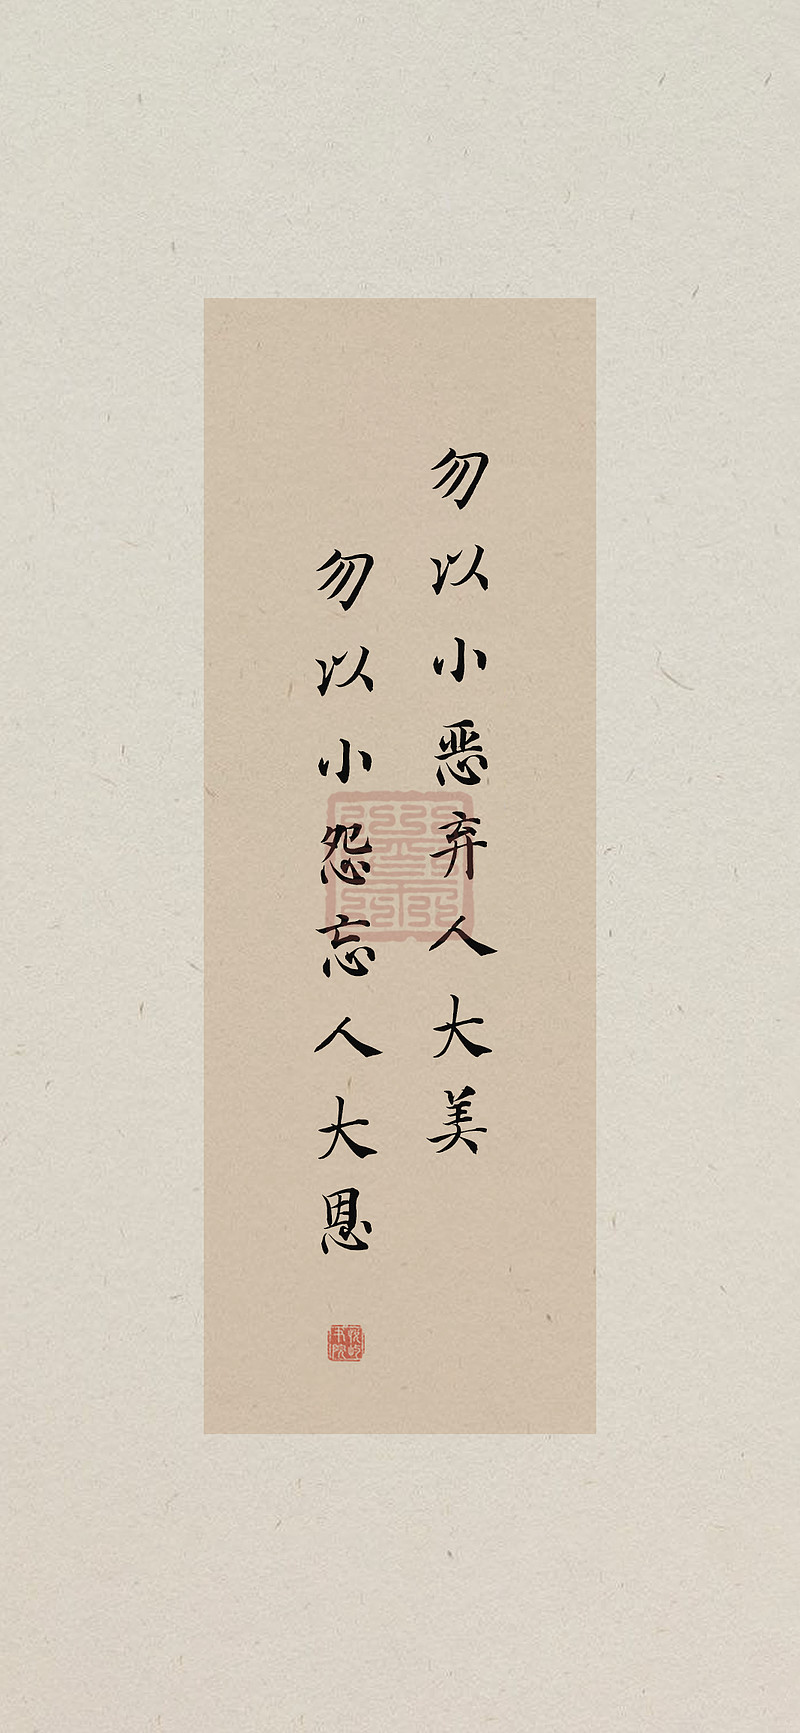 勿以小恶弃人大美
勿以小怨忘人大恩